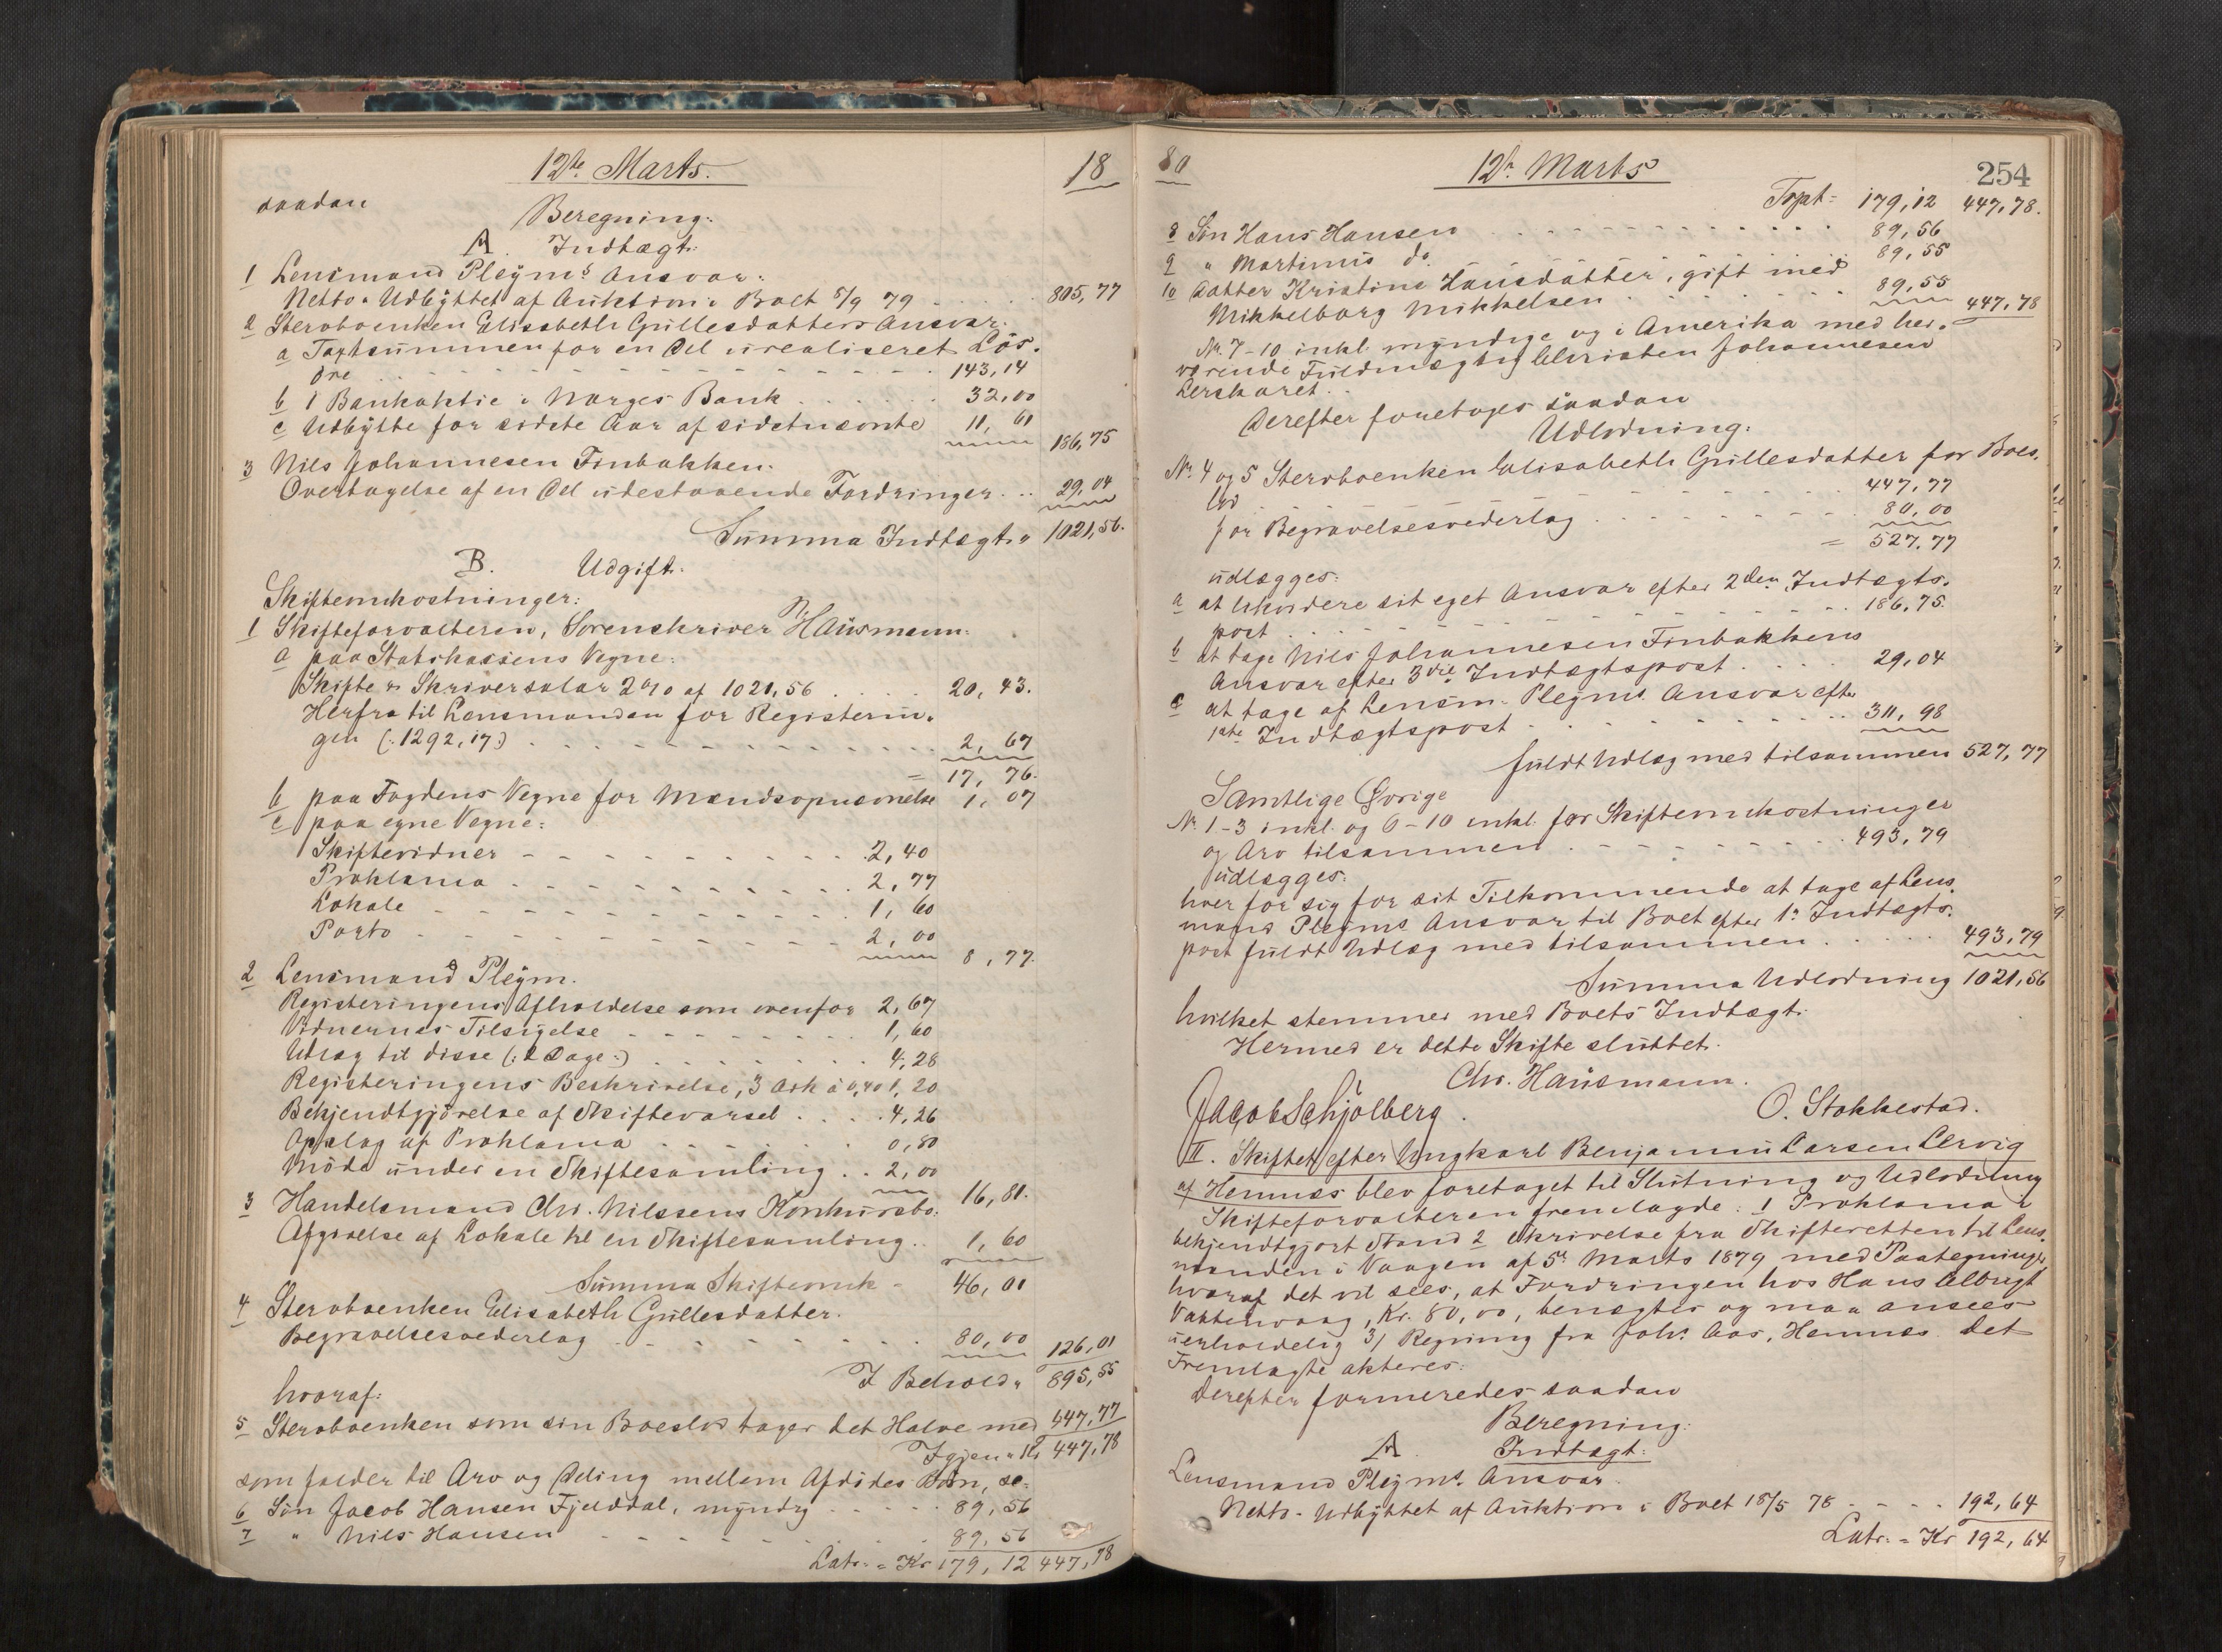 12te Marts.
18
saadan
Beregning:
A. Indtægt:
1 Lensmand Pleÿms Ansvar:
Netto-Udbÿttet af Auktion i Boet 8/9 79 - - - - 805,77
2 Stervboenken Elisabeth Gullesdatters Ansvar:
a Taxtsummen for en Del urealiseret Løs-
øre - - - - - - - - - - 143,14
b 1 Bankaktie i Norges Bank . . . . . 32,00
c Udbÿtte for sidste Aar af sidstnævnte 11,61
186,75
3 Nils Johannesen Finbakken.
Overtagelse af en Del udestaaende Fordringer . . 29,04
Summa Indtægt „ 1021,56.
B. Udgift:
Skifteomkostninger:
1 Skifteforvalteren, Sorenskriver Hausmann:
a paa Statskassens Vegne:
Skifte & Skriversalær 2% af 1021,56 . . . . 20,43.
Herfra til Lensmanden for Registerin-
gen (: 1292,17:) . . . . . . . . . 2,67
= 17,76.
b paa Fogdens Vegne for Mandsopnævnelse 1,07
c paa egne Vegne:
Skiftevidner - - - - - - - - - - 2,40
Proklama . - - - - - - - - - . 2,77
Lokale - - - - - - - - - - . 1,60
Porto - - - - - - - - - - - 2,00
8,77.
2 Lensmand Pleÿm.
Registeringens Afholdelse som ovenfor 2,67
Vidnernes Tilsigelse - - - - - - - . 1,60
Udlæg til disse (: 2 Dage:) . . . . . . . 4,28
Registeringens Beskrivelse, 3 Ark à 0,40 1,20
Bekjendtgjørelse af Skiftevarsel . . . . 4,26
Opslag af Proklama - - - - - - . 0,80
Møde under en Skiftesamling . . 2,00
16,81.
3 Handelsmand Chr. Nilssens Konkursbo:
Afgivelse af Lokale til en Skiftesamling . . 1,60
Summa Skifteomk - 46,01
4 Stervboenken Elisabeth Gullesdatter.
Begravelsesvederlag - - - - - - - . 80,00 126,01
I Behold „ 895,55
hvoraf:
5 Stervboenken som sin Boeslod tager det Halve med 447,77
Igjen „ Kr 447,78
som falder til Arv og Deling mellem Afdødes Børn, se:
6 Søn Jacob Hansen Fjelddal, mÿndig - - - - - 89,56
7 " Nils Hansen - - - - - - - - - 89,56
Latr. = Kr 179,12 447,78
80
12te Marts
254
Tspt = 179,12 447,78.
8 Søn Hans Hansen . . - - - - - - - - . . 89,56
9 " Martinus do. 89,55
10 Datter Kristine Hansdatter, gift med
Mikkelborg Mikkelsen . . . . . . . 89,55
447,78
No. 7-10 inkl. mÿndige og i Amerika med her-
værende Fuldmægtig Christen Johannesen
Lerskaret.
Derefter foretoges saadan
Udlodning:
No. 4 og 5 Stervboenken Elisabeth Gullesdatter for Boes-
lod . - - - - - - - - - - 447,77
for Begravelsesvederlag . - - - - - - . 80,00
= 527,77
udlægges:
a at likvidere sit eget Ansvar efter 2den Indtægts-
post . - - - - - - - - - - - 186,75.
b at tage Nils Johannesen Finbakkens
Ansvar efter 3die Indtægtspost . . . . . 29,04
c at tage af Lensm. Pleÿms Ansvar efter
1ste Indtægtspost . . . . . . . . . 311,98
fuldt Udlæg med tilsammen 527,77
Samtlige Øvrige
No. 1-3 inkl. og 6-10 inkl. for Skifteomkostninger
og Arv tilsammen . - - - - - - - - . 493,79
udlægges:
hver for sig for sit Tilkommende at tage af Lens-
mand Pleÿms Ansvar til Boet efter 1ste Indtægts-
post fuldt Udlæg med tilsammen . . . . . . 493,79
Summa Udlodning 1021,56
hvilket stemmer med Boets Indtægt.
Hermed er dette Skifte sluttet.
Chr. Hausmann.
Jacob Schjølberg. O. Stokkestad.
II. Skiftet efter Ungkarl Benjamin Larsen Lervig
af Hemnæs blev foretaget til Slutning og Udlodning
Skifteforvalteren fremlagde: 1 Proklama i
bekjendtgjort Stand 2 Skrivelse fra Skifteretten til Lens-
manden i Vaagen af 5te Marts 1879 med Paategninger,
hvoraf det vil sees, at Fordringen hos Hans Albrigt
Vattervaag, Kr. 80,00, benægtes og maa ansees
uerholdelig 3/ Regning fra Johs. Aas, Hemnæs. Det
Fremlagte akteres:
Derefter formeredes saadan
Beregning:
A. Indtægt:
Lensmand Pleÿms. Ansvar.
Netto-Udbÿttet af Auktion i Boet 18/5 78 - - - . 192,64
Latr. = Kr 192,64